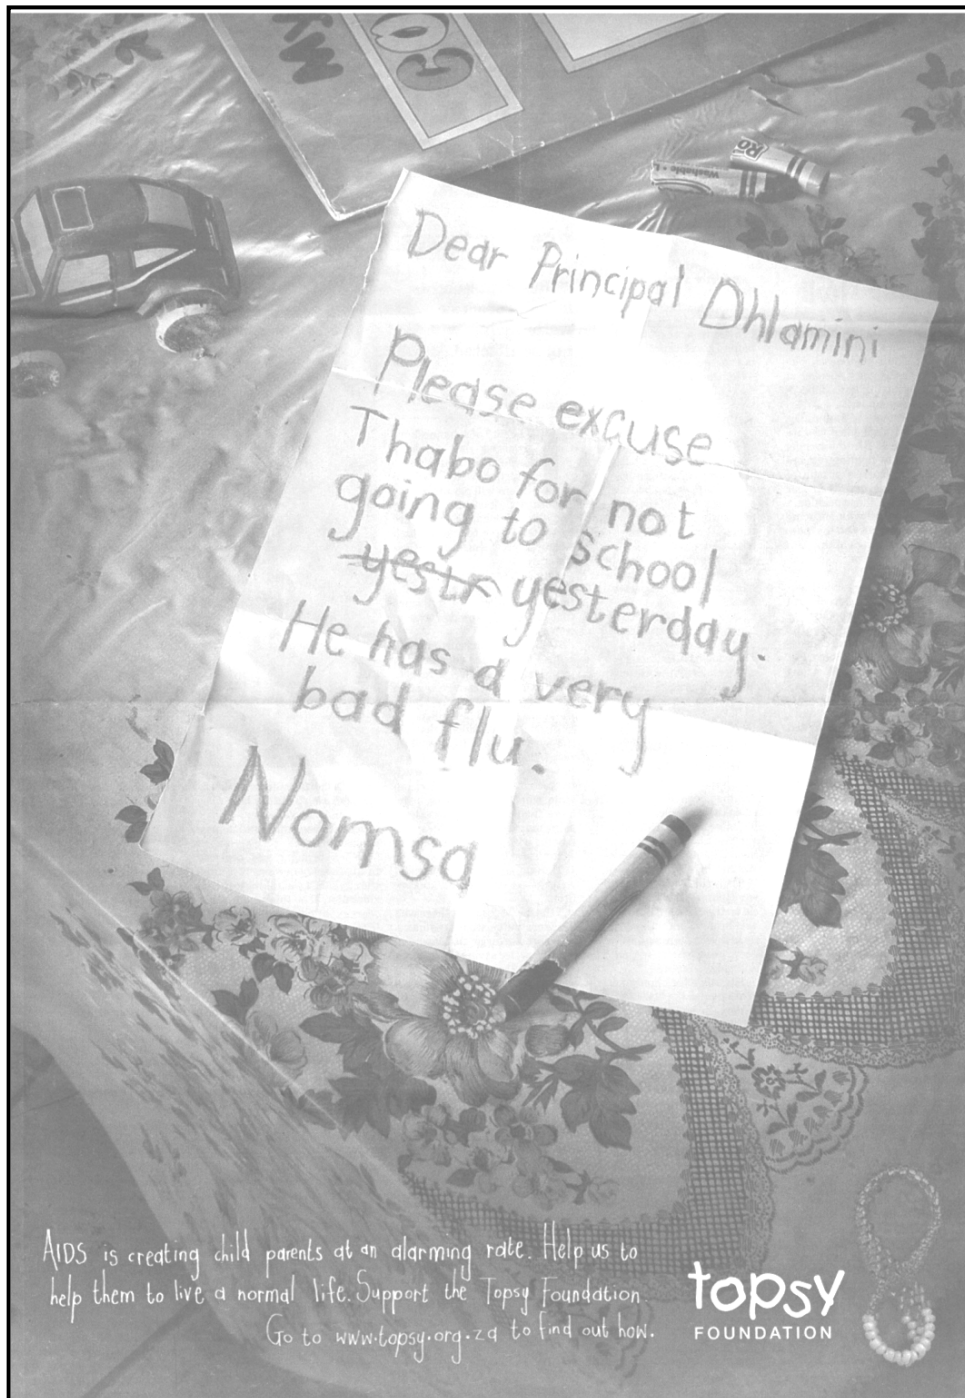 MY
CO
Washable
RO
Dear Principal Dhlamini
Please excuse
Thabo for not
going to school
yestr yesterday.
He has a very
bad flu.
Nomsa
AIDS is creating child parents at an alarming rate. Help us to
help them to live a normal life. Support the Topsy Foundation.
Go to www.topsy.org.za to find out how.
topsy
FOUNDATION